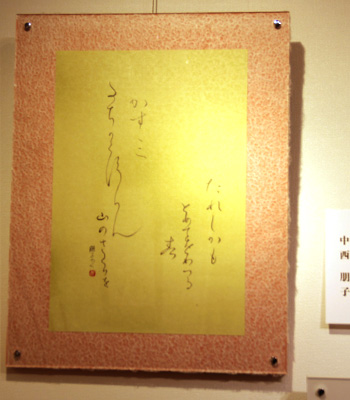 たれしかも
とめてをりつる
春
かすミ
たちかくすらん
山のさくらを
中西 朋子